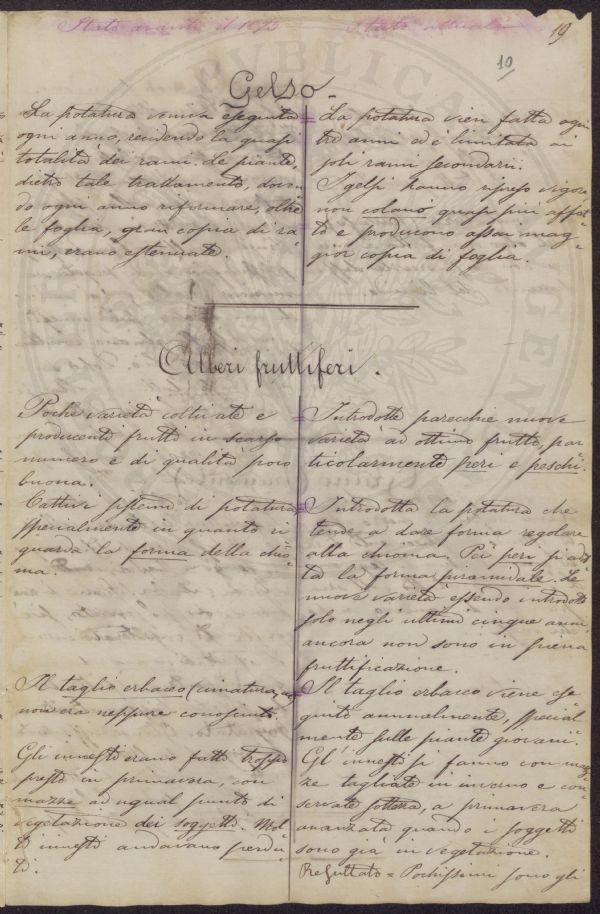 Stato avanti il 1873
Stato attuale
19
10
Gelso
La potatura veniva eseguita
ogni anno, recidendo la quasi
totalità dei rami. Le piante,
dietro tale trattamento, doven
do ogni anno rifornire, oltre
le foglia, gran copia di ra=
mi, erano estenuate.
= La potatura vien fatta ogni
tre anni ed è limitata ai
soli rami secondarii.
I gelsi hanno ripreso vigore
non colano quasi più affat=
to e producono assai mag=
gior copia di foglia.
Alberi fruttiferi.
Poche varietà coltivate e
producenti frutti in scarso
numero e di qualità poco
buona.
Cattivi sistemi di potatura
specialmente in quanto ri
guarda la forma della chio=
ma.
Il taglio erbaceo (cimatura,
non era neppure conosciuto.
Gli innesti erano fatti troppo
presto in primavera, con
mazze ad ugual punto di
vegetazione dei soggetti. Mol
ti innesti andavano perdu=
ti.
= Introdotte parecchie nuove
varietà ad ottimo frutto, par
ticolarmente peri e peschi.
= Introdotta la potatura che
tende a dare forma regolare
alla chioma. Pei peri si adot
ta la forma piramidale. Le
nuove varietà essendo introdotte
solo negli ultimi cinque anni
ancora non sono in piena
fruttificazione.
= Il taglio erbaceo viene ese
guito annualmente, special
mente sulle piante giovani.
Gl'innesti si fanno con maz
ze tagliate in inverno e con=
servate sotterra, a primavera
avanzata quando i soggetti
sono già in vegetazione.
Resultato = Pochissimi sono gli